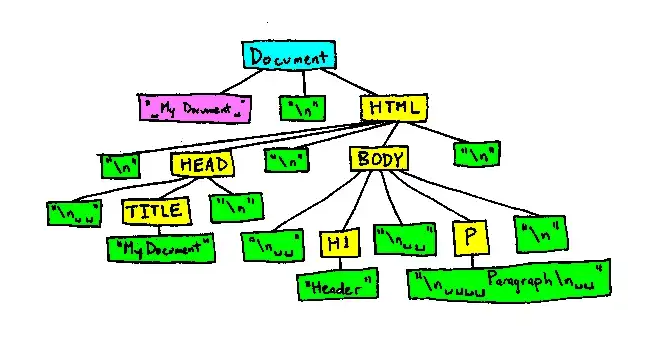 Document
"␣My Document␣" "\n" HTML
"\n" HEAD "\n" BODY "\n"
"\n␣␣" TITLE "\n" "\n␣␣" H1 "\n␣␣" P "\n"
"My Document" "Header" "\n␣␣␣␣Paragraph\n␣␣"